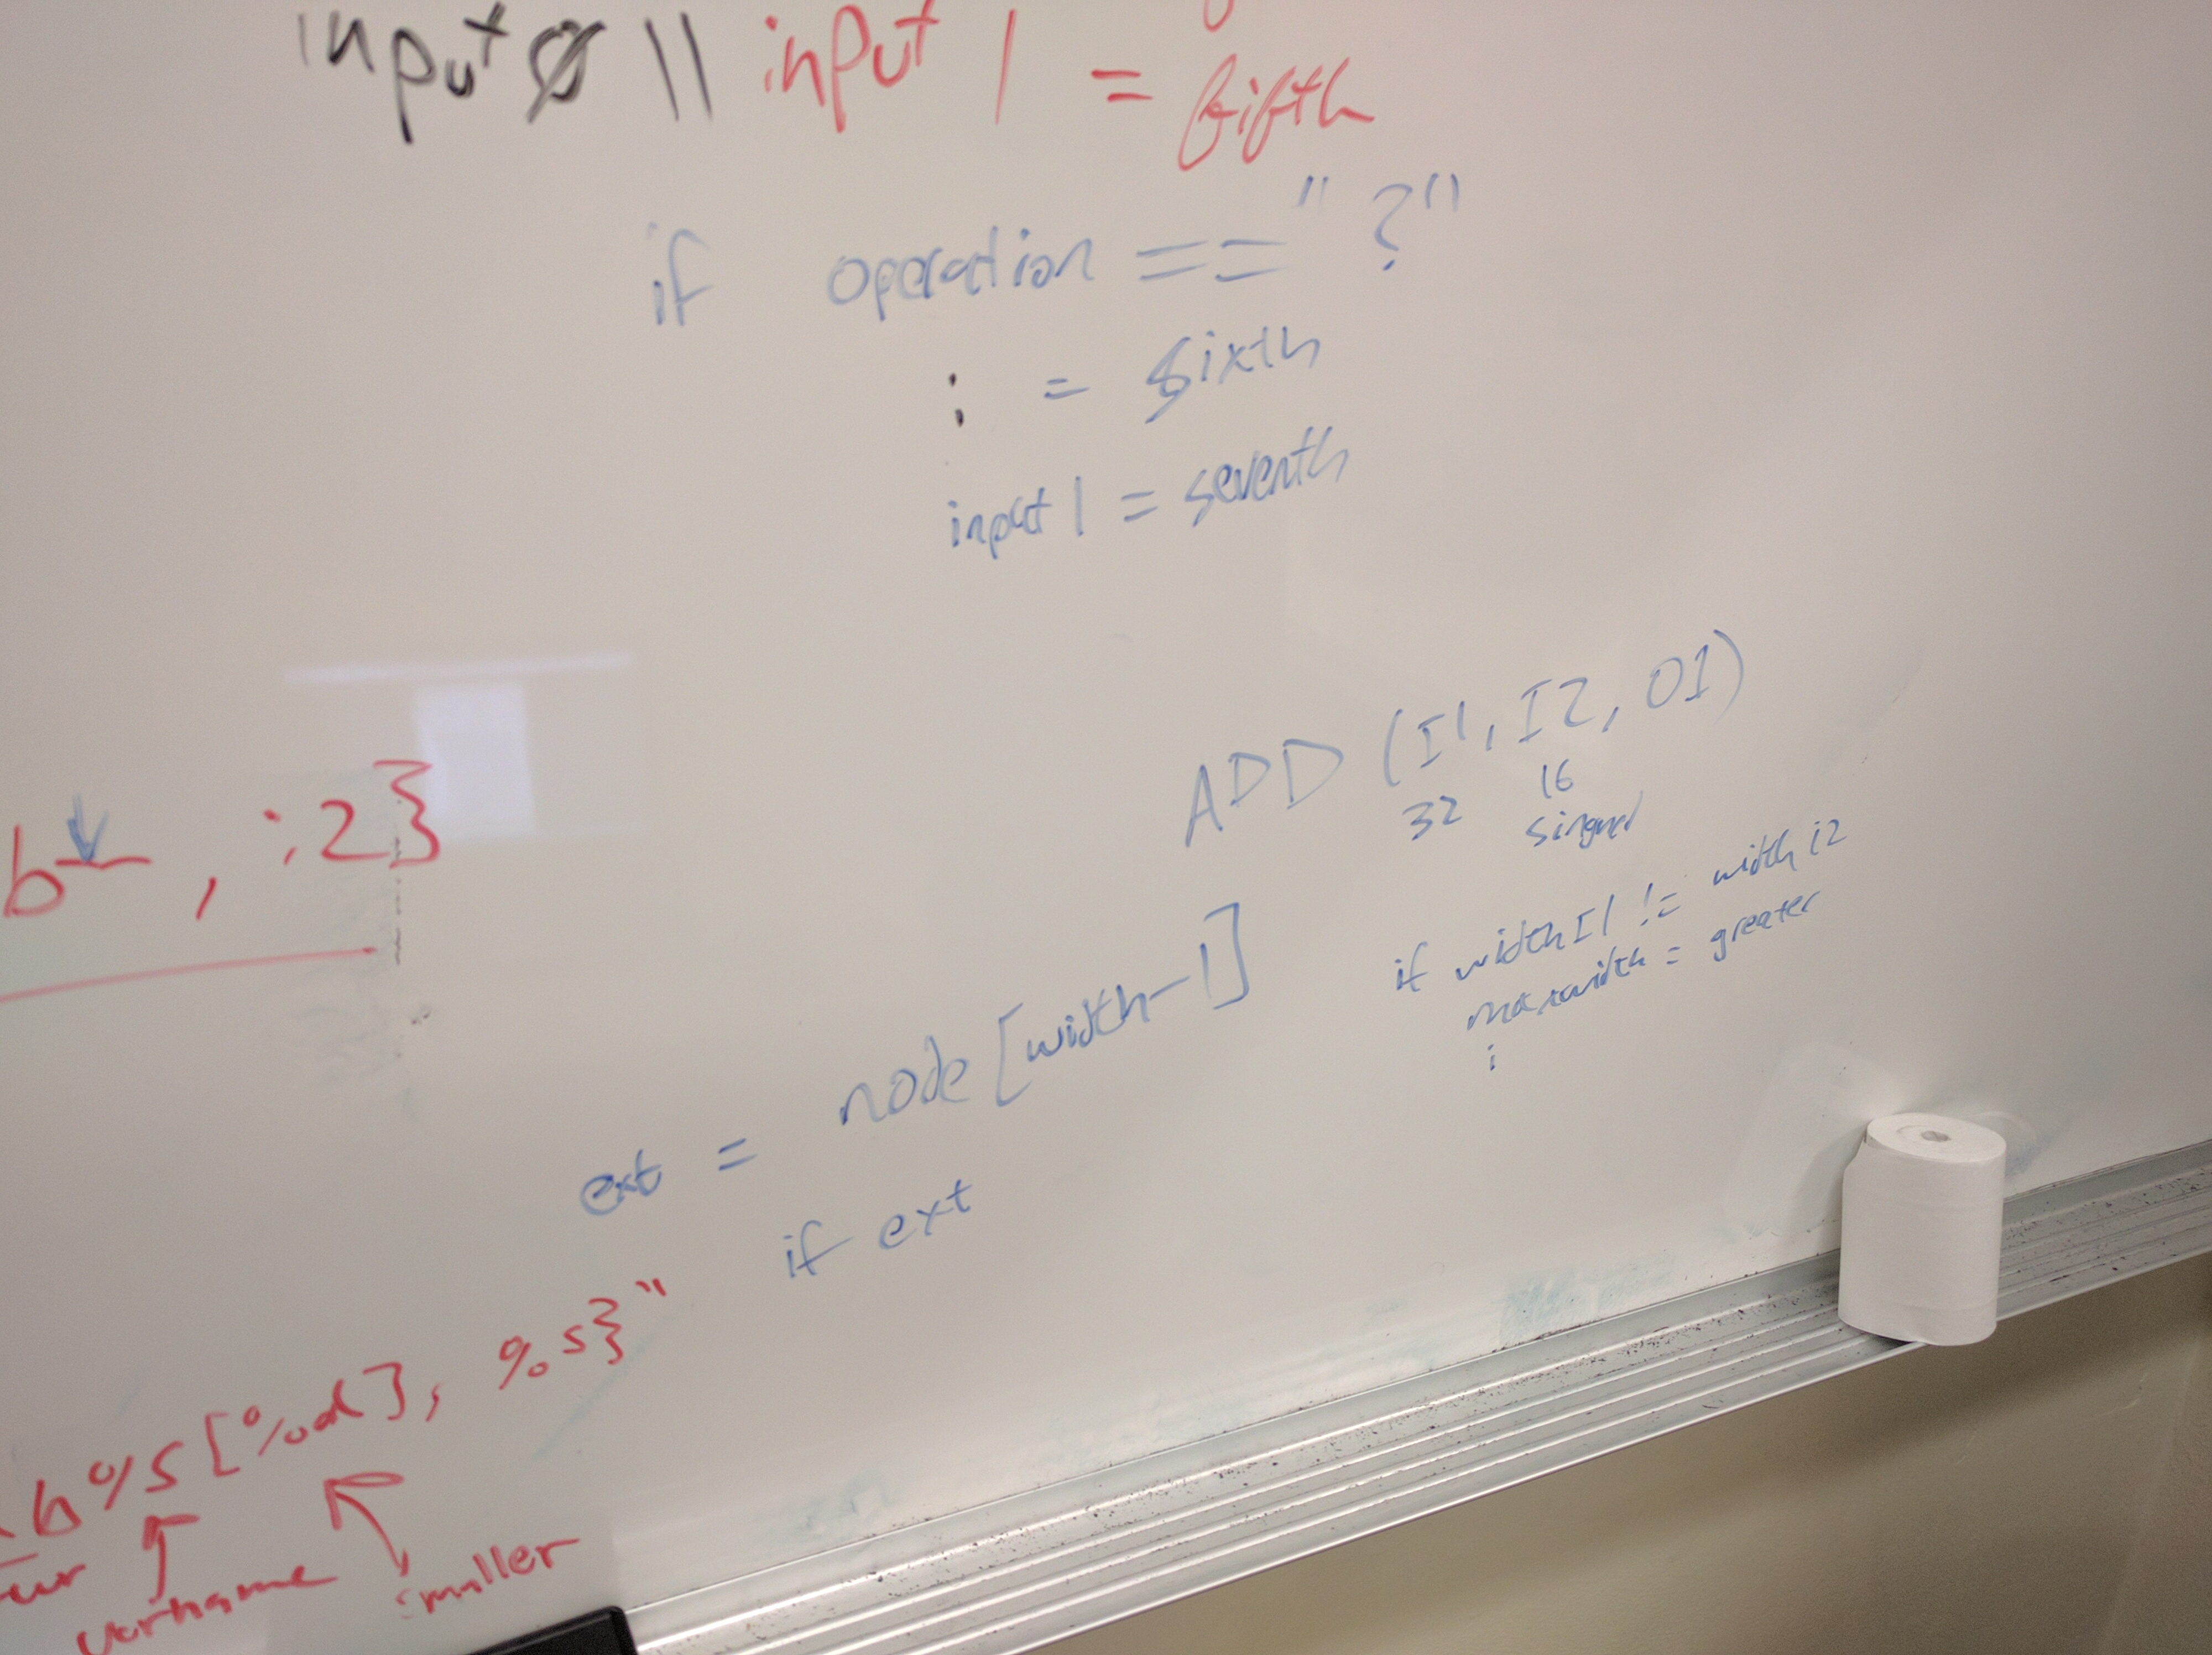 input0 || input 1 = fifth
if operation == "?"
: = sixth
input 1 = seventh
ADD (I1, I2, O1)
32 16
singned
b , :2}
if width I1 != width i2
maxwidth = greater
i
ext = node [width-1]
if ext
b%s[%d], %s}"
varname smaller